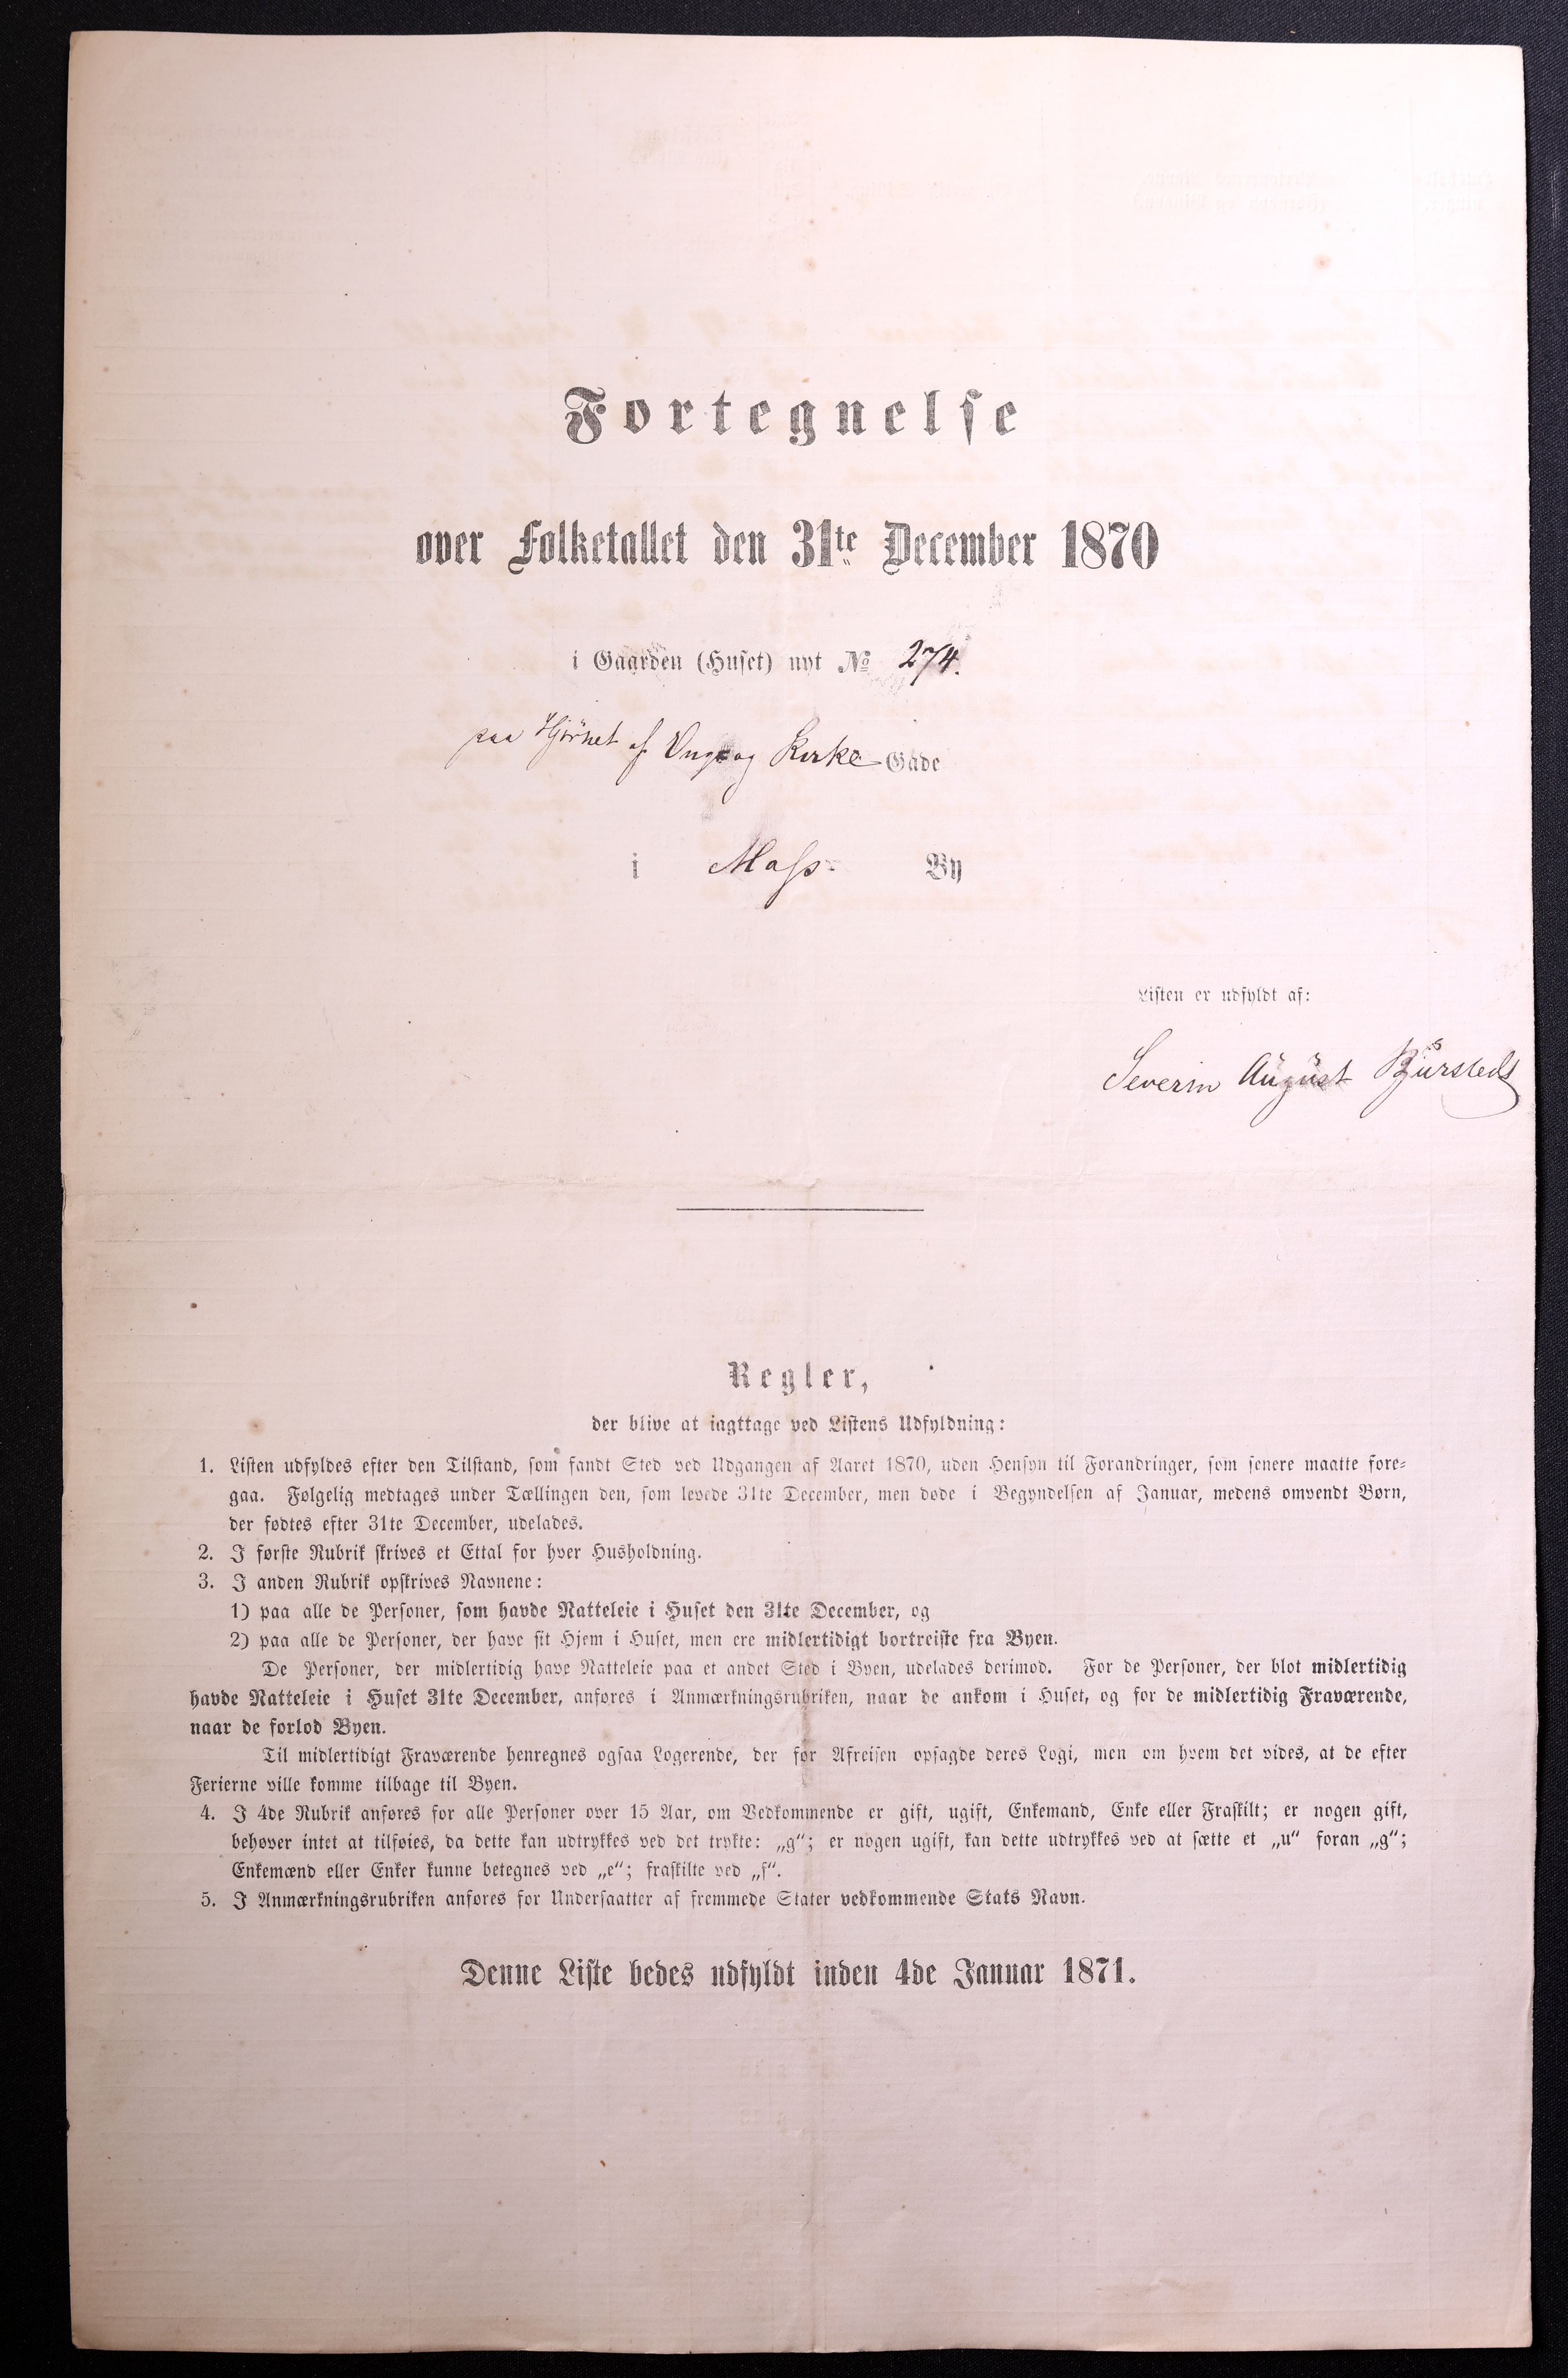 Fortegnelse
over Folketallet den 31te December 1870
i Gaarden (Huset) nyt № 274.
paa Hjörnet af Vog og Kirke Gade
i Moss By
Listen er udfyldt af:
Severin August
Regler,
der blive at iagttage ved Listens Udfyldning:
1. Listen udfyldes efter den Tilstand, som fandt Sted ved Udgangen af Aaret 1870, uden Hensyn til Forandringer, som senere maatte fore-
gaa. Følgelig medtages under Tællingen den, som levede 31te December, men døde i Begyndelsen af Januar, medens omvendt Børn,
der fødtes efter 31te December, udelades.
2. I første Rubrik skrives et Ettal for hver Husholdning.
3. I anden Rubrik opskrives Navnene:
1) paa alle de Personer, som havde Natteleie i Huset den 31te December, og
2) paa alle de Personer, der have sit Hjem i Huset, men ere midlertidigt bortreiste fra Byen.
De Personer, der midlertidig have Natteleie paa et andet Sted i Byen, udelades derimod. For de Personer, der blot midlertidig
havde Natteleie i Huset 31te December, anføres i Anmærkningsrubriken, naar de ankom i Huset, og for de midlertidig Fraværende,
naar de forlod Byen.
Til midlertidigt Fraværende henregnes ogsaa Logerende, der før Afreisen opsagde deres Logi, men om hvem det vides, at de efter
Ferierne ville komme tilbage til Byen.
4. I 4de Rubrik anføres for alle Personer over 15 Aar, om Vedkommende er gift, ugift, Enkemand, Enke eller Fraskilt; er nogen gift,
behøver intet at tilføies, da dette kan udtrykkes ved det trykte: „g“; er nogen ugift, kan dette udtrykkes ved at sætte et „u“ foran „g“;
Enkemænd eller Enker kunne betegnes ved „e“; fraskilte ved „f“.
5. I Anmærkningsrubriken anføres for Undersaatter af fremmede Stater vedkommende Stats Navn.
Denne Liste bedes udfyldt inden 4de Januar 1871.